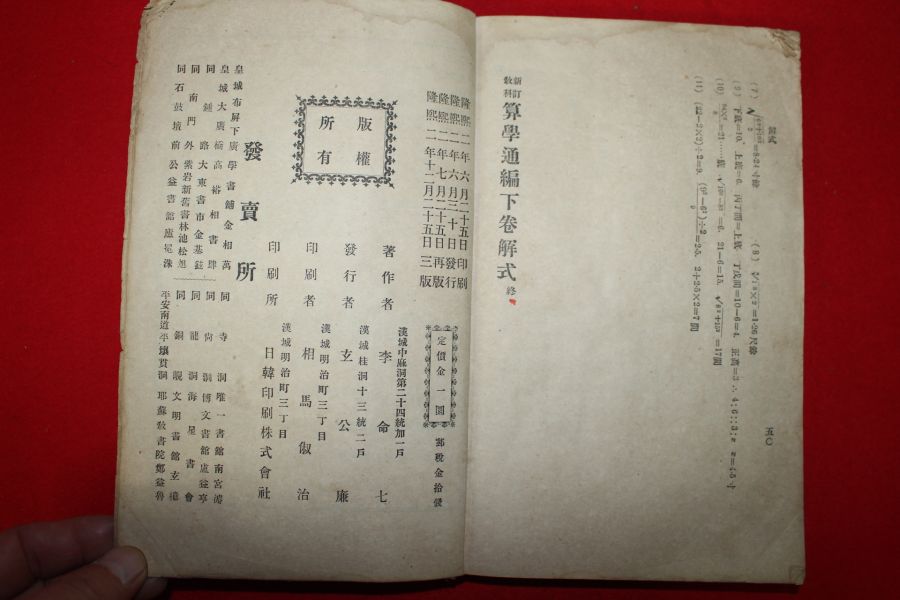 解式
五〇
(7)
(8)
(9) 下底=10. 上底=6. 丙丁間=上底. 丁戊間=10−6=4.
(10)
(11) (22−2×2)÷2=9. 2+2·5×2=7間
新訂
敎科
算學通編下卷解式 終
隆熙二年六月二十五日印刷
隆熙二年六月三十日發行
隆熙二年七月二十五日再版
隆熙二年十二月二十五日三版
版權
所有
定價金一圜
郵稅金拾錢
漢城中麻洞第二十四統加一戶
著作者 李命七
漢城桂洞十三統二戶
發行者 玄公廉
漢城明治町三丁目
印刷者 相馬俶治
漢城明治町三丁目
印刷所 日韓印刷株式會社
發賣所
皇城布屛下 廣學書舖 金相萬
皇城大廣橋 高裕相書肆
同鍾路 大東書市 金基鉉
同南門外 紫岩新舊書林 池松旭
同石鼓壇前 公益書館
同寺洞 唯一書館 南宮濬
同尙洞 博文書館 盧益亨
同龍洞 海星書會
同銅峴 文明書館
平安南道平壤貫洞 耶蘇敎書院 鄭益魯